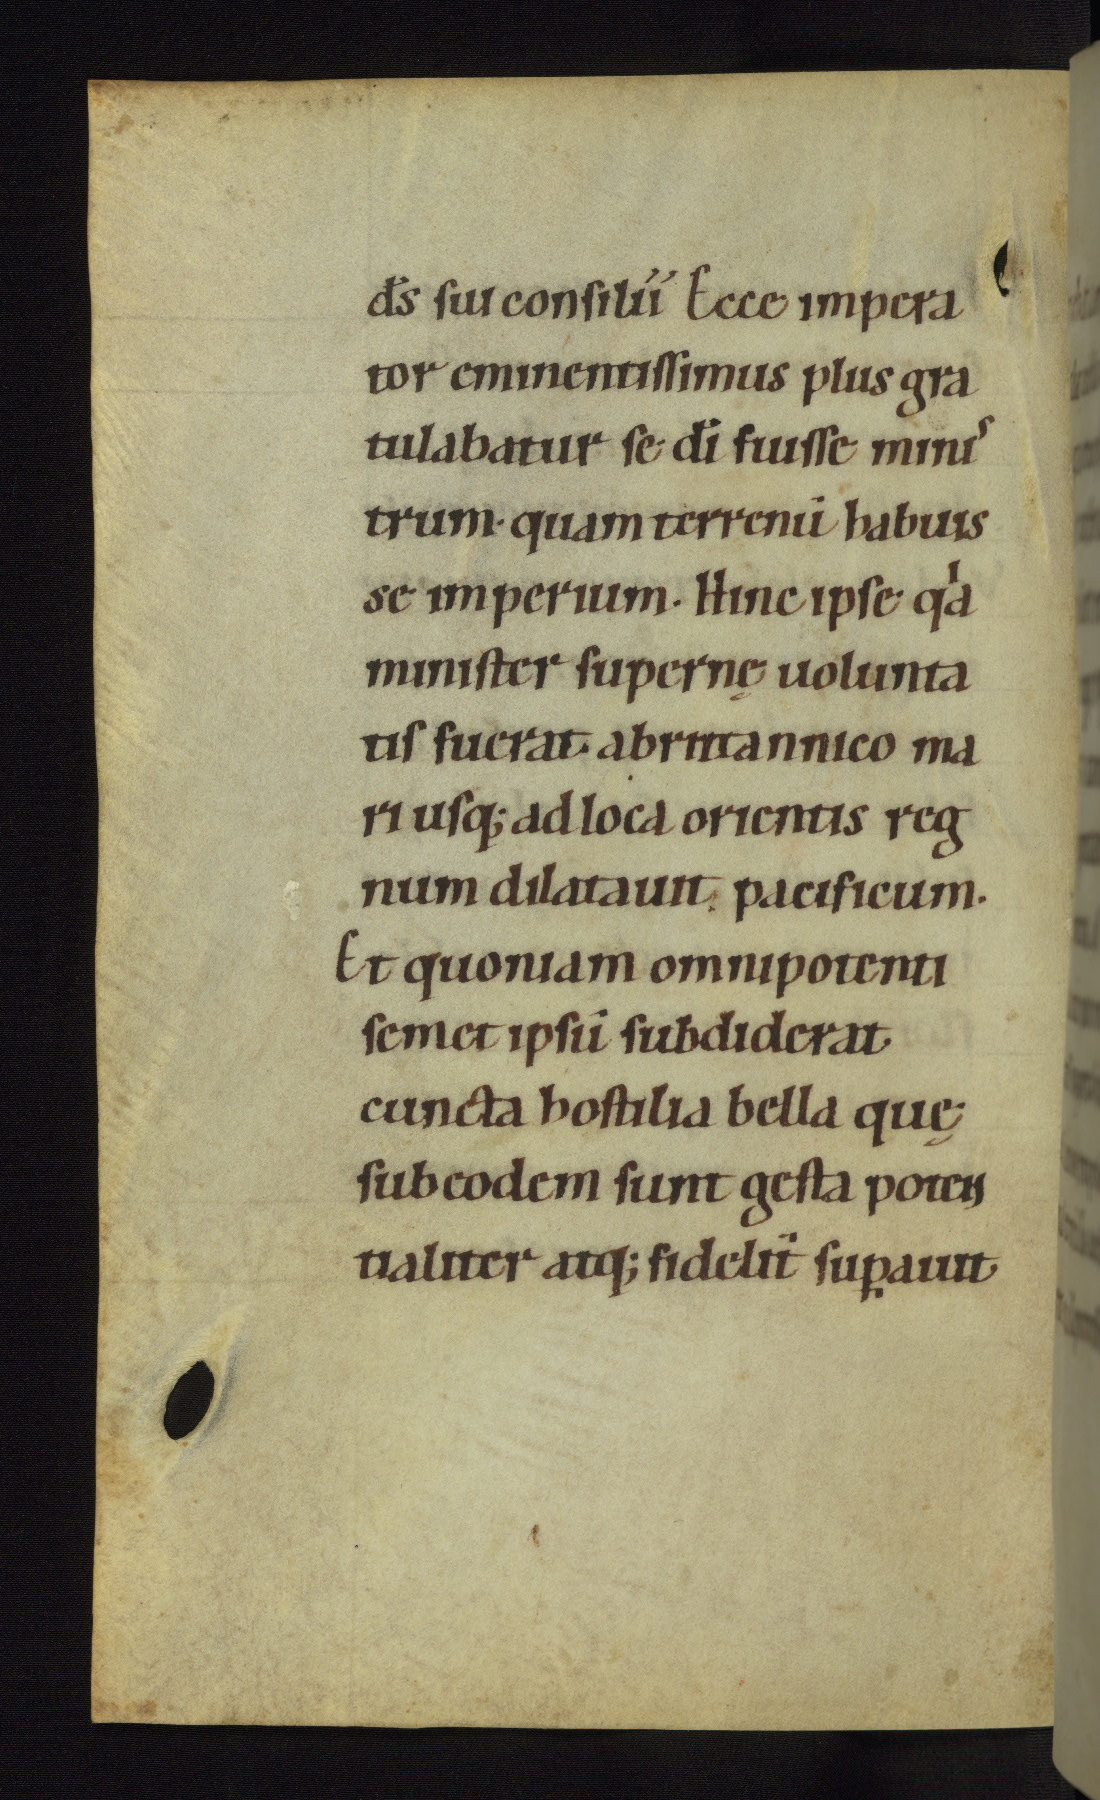 d̅s sui consilii Ecce impera
tor eminentissimus plus gra
tulabatur se di̅ fuisse minis
trum· quam terrenu̅ habuis
se imperium. Hinc ipse qͥa
minister supernę uolunta
tis fuerat. abrittannico ma
ri usq; ad loca orientis reg
num dilatauit. pacificum.
Et quoniam omnipotenti
semet ipsu̅ subdiderat
cuncta hostilia bella quę
sub eodem sunt gesta poten
tialiter atq; fidelit̅ sup̱auit